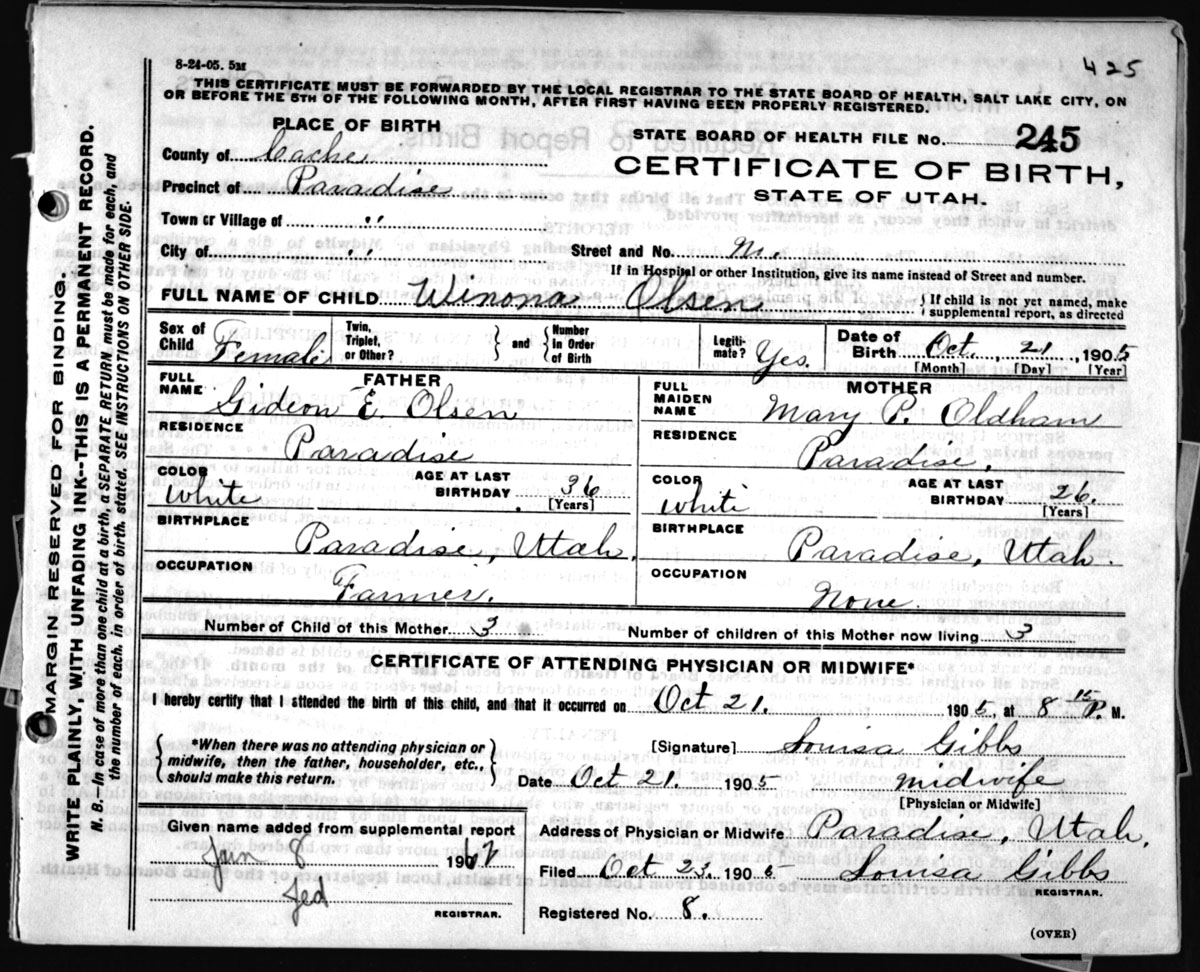 425
8-24-05. 5M
THIS CERTIFICATE MUST BE FORWARDED BY THE LOCAL REGISTRAR TO THE STATE BOARD OF HEALTH, SALT LAKE CITY, ON
OR BEFORE THE 5TH OF THE FOLLOWING MONTH, AFTER FIRST HAVING BEEN PROPERLY REGISTERED.
PLACE OF BIRTH
STATE BOARD OF HEALTH FILE No. 245
County of Cache
CERTIFICATE OF BIRTH,
Precinct of Paradise
STATE OF UTAH.
Town or Village of "
City of "
Street and No.
If in Hospital or other Institution, give its name instead of Street and number.
FULL NAME OF CHILD. Winona Olsen
{ If child is not yet named, make
supplemental report, as directed
Sex of Child Female
Twin, Triplet, or Other? } and { Number in Order of Birth
Legitimate? Yes.
Date of Birth Oct., 21, 1905
[Month] [Day] [Year]
FATHER
FULL NAME Gideon E. Olsen
RESIDENCE Paradise
COLOR White
AGE AT LAST BIRTHDAY 36
[Years]
BIRTHPLACE Paradise, Utah.
OCCUPATION Farmer.
MOTHER
FULL MAIDEN NAME Mary P. Oldham
RESIDENCE Paradise.
COLOR White
AGE AT LAST BIRTHDAY 26.
[Years]
BIRTHPLACE Paradise, Utah.
OCCUPATION None.
Number of Child of this Mother 3
Number of children of this Mother now living 3
CERTIFICATE OF ATTENDING PHYSICIAN OR MIDWIFE*
I hereby certify that I attended the birth of this child, and that it occurred on Oct 21. 1905, at 8 15 P. M.
{ *When there was no attending physician or
midwife, then the father, householder, etc.,
should make this return. }
[Signature] Louisa Gibbs
Date Oct 21 1905 midwife
[Physician or Midwife]
Given name added from supplemental report
Address of Physician or Midwife Paradise, Utah,
Jan 8 190
Filed Oct 23. 190 Louisa Gibbs
REGISTRAR.
REGISTRAR.
Registered No. 8.
(OVER)
MARGIN RESERVED FOR BINDING.
WRITE PLAINLY, WITH UNFADING INK--THIS IS A PERMANENT RECORD.
N. B. In case of more than one child at a birth, a SEPARATE RETURN must be made for each, and
the number of each, in order of birth, stated SEE INSTRUCTIONS ON OTHER SIDE.